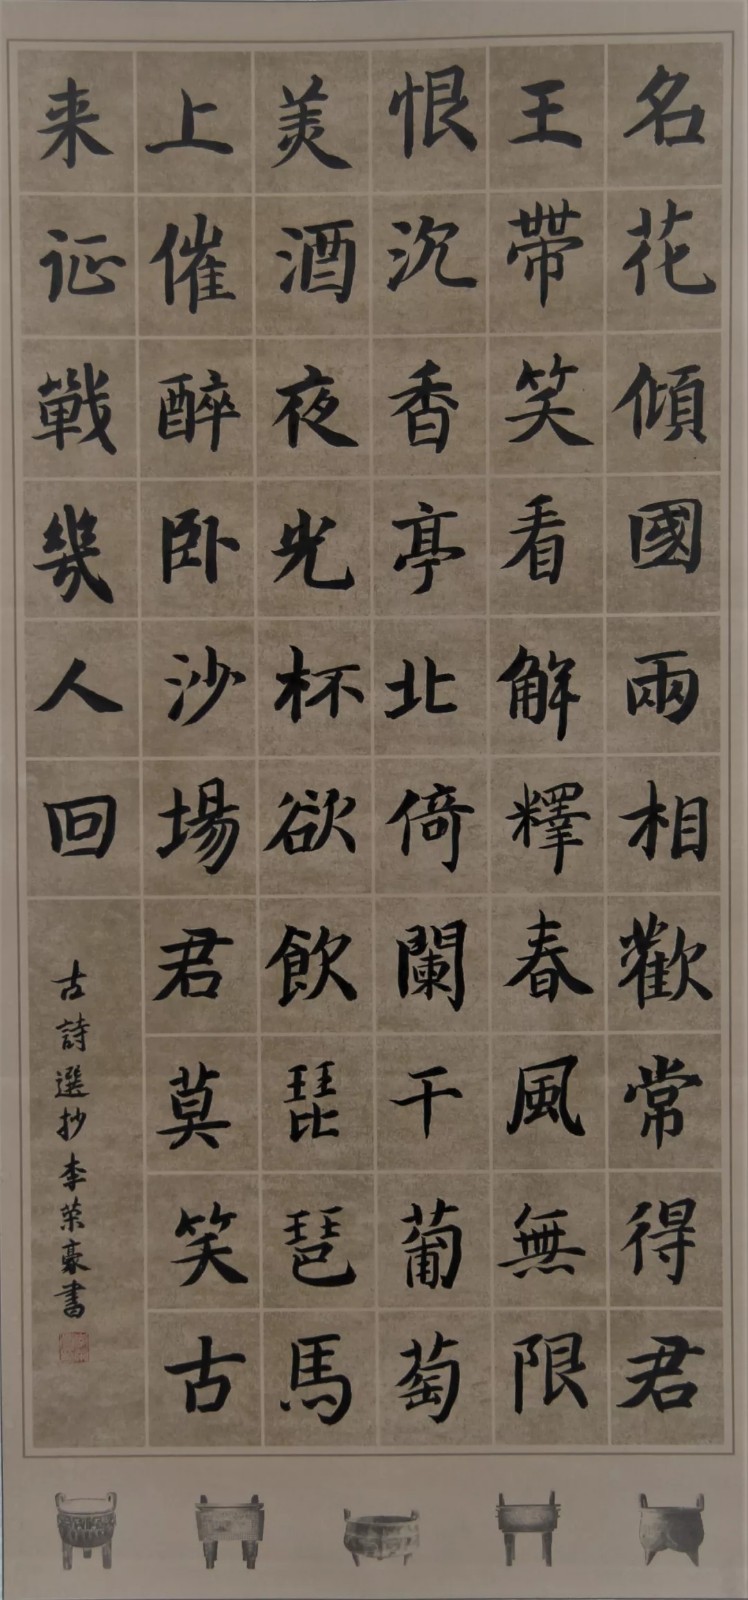 名花傾國兩相歡常得君
王帶笑看解釋春風無限
恨沉香亭北倚闌干葡萄
美酒夜光杯欲飲琵琶馬
上催醉卧沙場君莫笑古
来证戰幾人回
古詩選抄李荣豪書